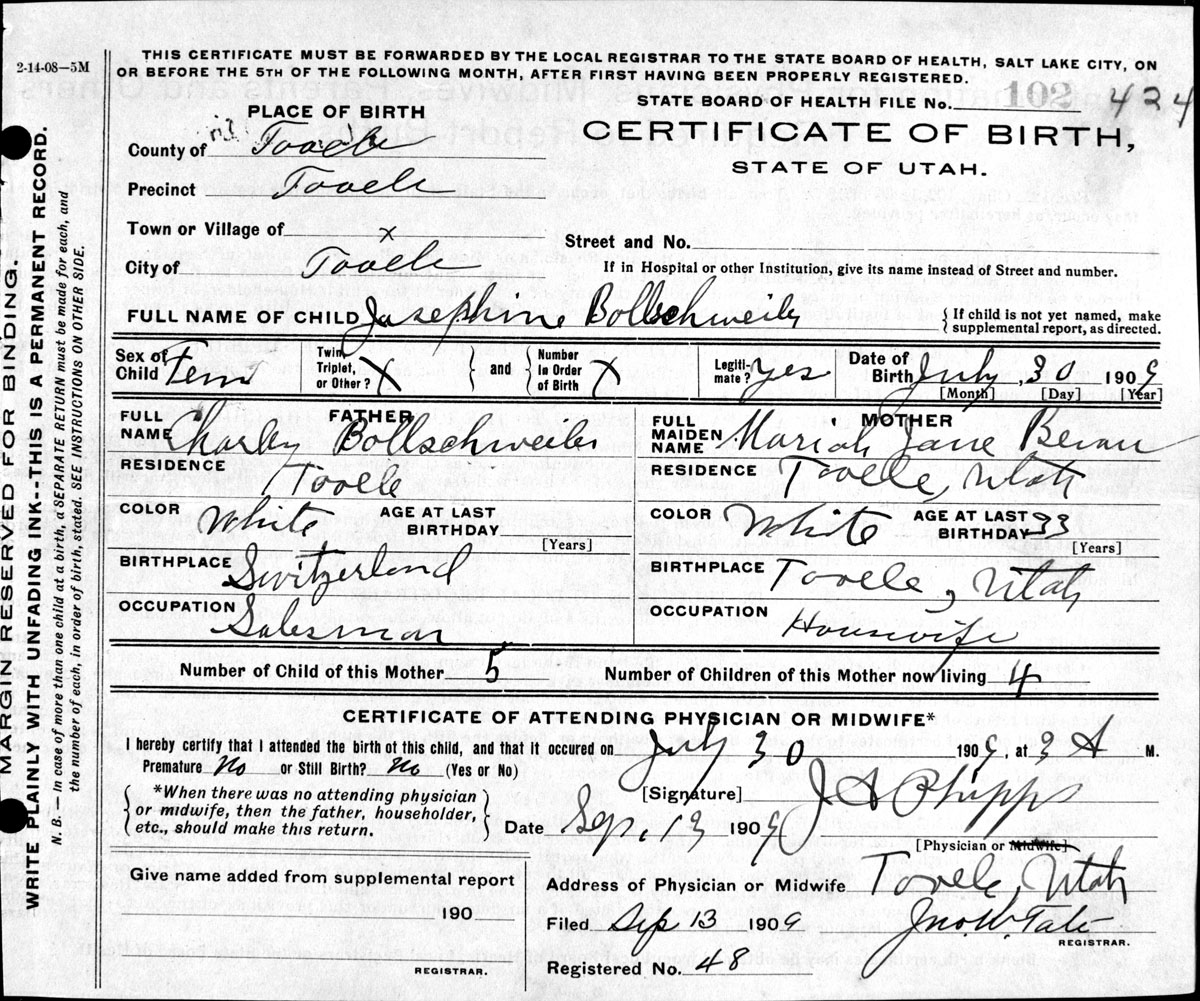 2-14-08—5M
THIS CERTIFICATE MUST BE FORWARDED BY THE LOCAL REGISTRAR TO THE STATE BOARD OF HEALTH, SALT LAKE CITY, ON
OR BEFORE THE 5TH OF THE FOLLOWING MONTH, AFTER FIRST HAVING BEEN PROPERLY REGISTERED.
STATE BOARD OF HEALTH FILE No. 102 424
PLACE OF BIRTH
CERTIFICATE OF BIRTH,
STATE OF UTAH.
County of Tooele
Precinct Tooele
Town or Village of x
Street and No.
City of Tooele
If in Hospital or other Institution, give its name instead of Street and number.
FULL NAME OF CHILD Josephine Bollschweiler
{ If child is not yet named, make
supplemental report, as directed.
Sex of Child Fem
Twin, Triplet, or Other? X
and
Number in Order of Birth X
Legiti-mate? yes
Date of Birth July 30 1909
[Month] [Day] [Year]
FATHER
FULL NAME Charley Bollschweiler
RESIDENCE Tooele
COLOR White AGE AT LAST BIRTHDAY
[Years]
BIRTHPLACE Switzerland
OCCUPATION Salesman
MOTHER
FULL MAIDEN NAME Mariah Jane Bevan
RESIDENCE Tooele, Utah
COLOR White AGE AT LAST BIRTHDAY 33
[Years]
BIRTHPLACE Tooele, Utah
OCCUPATION Housewife
Number of Child of this Mother 5
Number of Children of this Mother now living 4
CERTIFICATE OF ATTENDING PHYSICIAN OR MIDWIFE*
I hereby certify that I attended the birth of this child, and that it occured on July 30 1909, at 3 A M.
Premature No or Still Birth? No (Yes or No)
*When there was no attending physician
or midwife, then the father, householder,
etc., should make this return.
[Signature] J A Phipps
Date Sep. 13 1909
[Physician or Midwife]
Give name added from supplemental report
190
REGISTRAR.
Address of Physician or Midwife Tooele, Utah
Filed Sep 13 1909 Jno. W. Tate
REGISTRAR.
Registered No. 48
MARGIN RESERVED FOR BINDING.
WRITE PLAINLY WITH UNFADING INK--THIS IS A PERMANENT RECORD.
N. B. — In case of more than one child at a birth, a SEPARATE RETURN must be made for each, and
the number of each, in order of birth, stated. SEE INSTRUCTIONS ON OTHER SIDE.